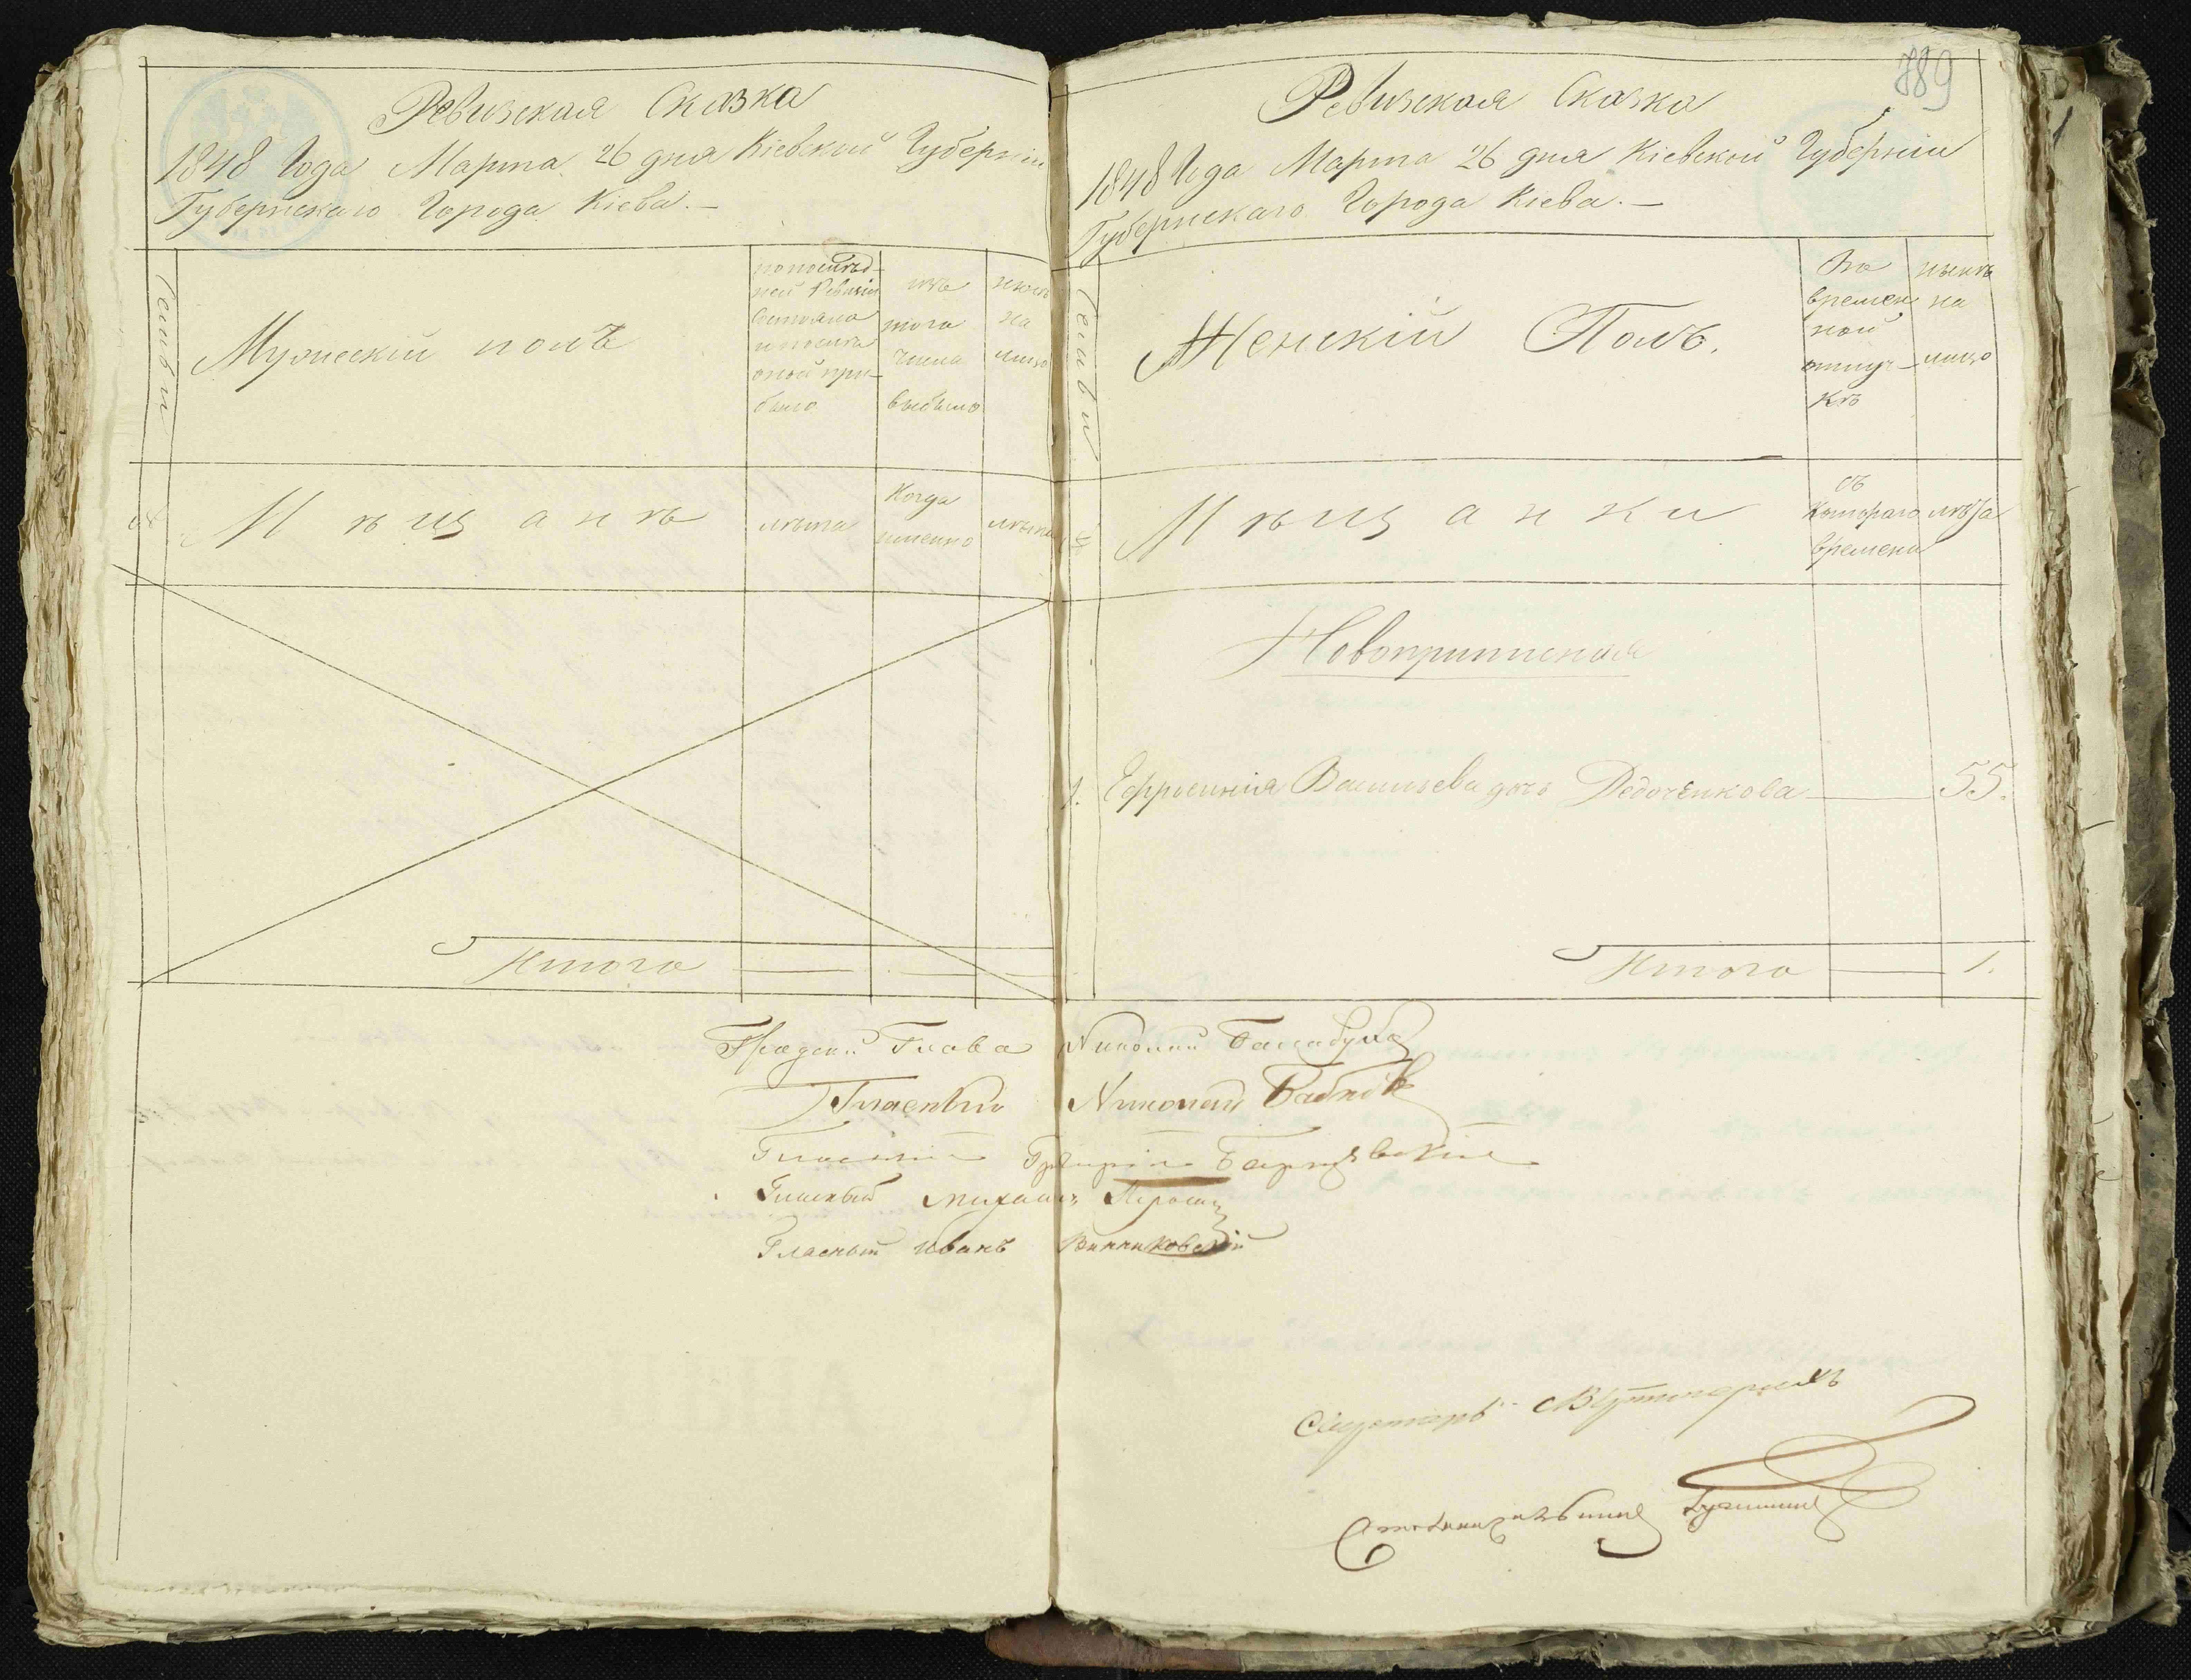 Ревизская Сказка
1848 Года Марта 26 дня Кіевской Губерніи
Губернскаго Города Кіева.—
Семьи
Мужескій полъ
по послѣд-
ней Ревизіи
состояло
и послѣ
оной при-
было
изъ
того
числа
выбыло
нынѣ
на
лицо
№
Мѣщанѣ
лѣта
Когда
именно
лѣта
Итого
789
Ревизская Сказка
1848 Года Марта 26 дня Кіевской Губерніи
Губернскаго Города Кіева.—
Семьи
Женскій Полъ.
Во
времен
ной
отлуч-
кѣ
нынѣ
на
лицо
№
Мѣщанки
съ
Котораго
времени
лѣта
Новоприписная
1. Ефросинія Васильева дочь Дедоченкова — 55.
Итого — 1.
Градскій Глава Николай Балабуха
Гласный Николай
Гласный Григорій
Гласный Михаилъ
Гласный Иванъ Винниковскій
Секретарь